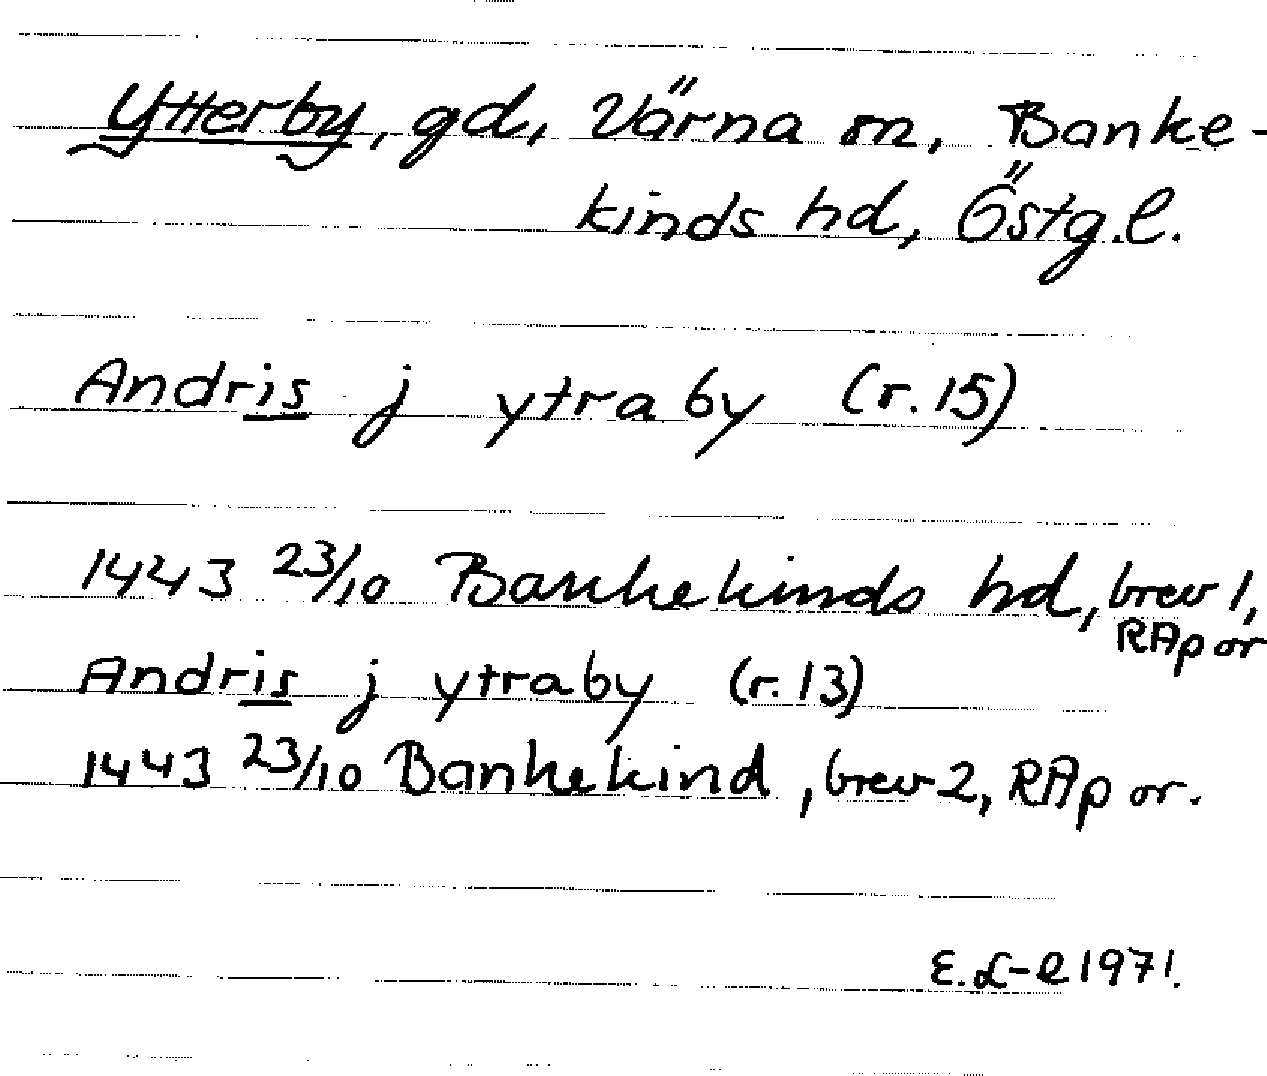 Ytterby, gd, Värna sn, Banke-
kinds hd, Östg.l.
Andris j ytraby (r.15)
1443 23/10 Bankekinds hd, brev 1,
RAp or
Andris j ytraby (r.13)
1443 23/10 Bankekind, brev 2, RAp or.
E.L-l 1971.